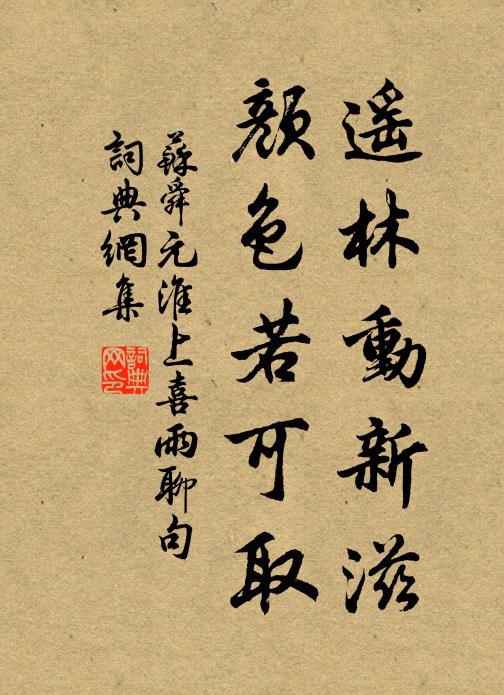 遥林動新滋
顏色若可取
蘇舜元淮上喜雨聊句
詞典網集
詞典
网印